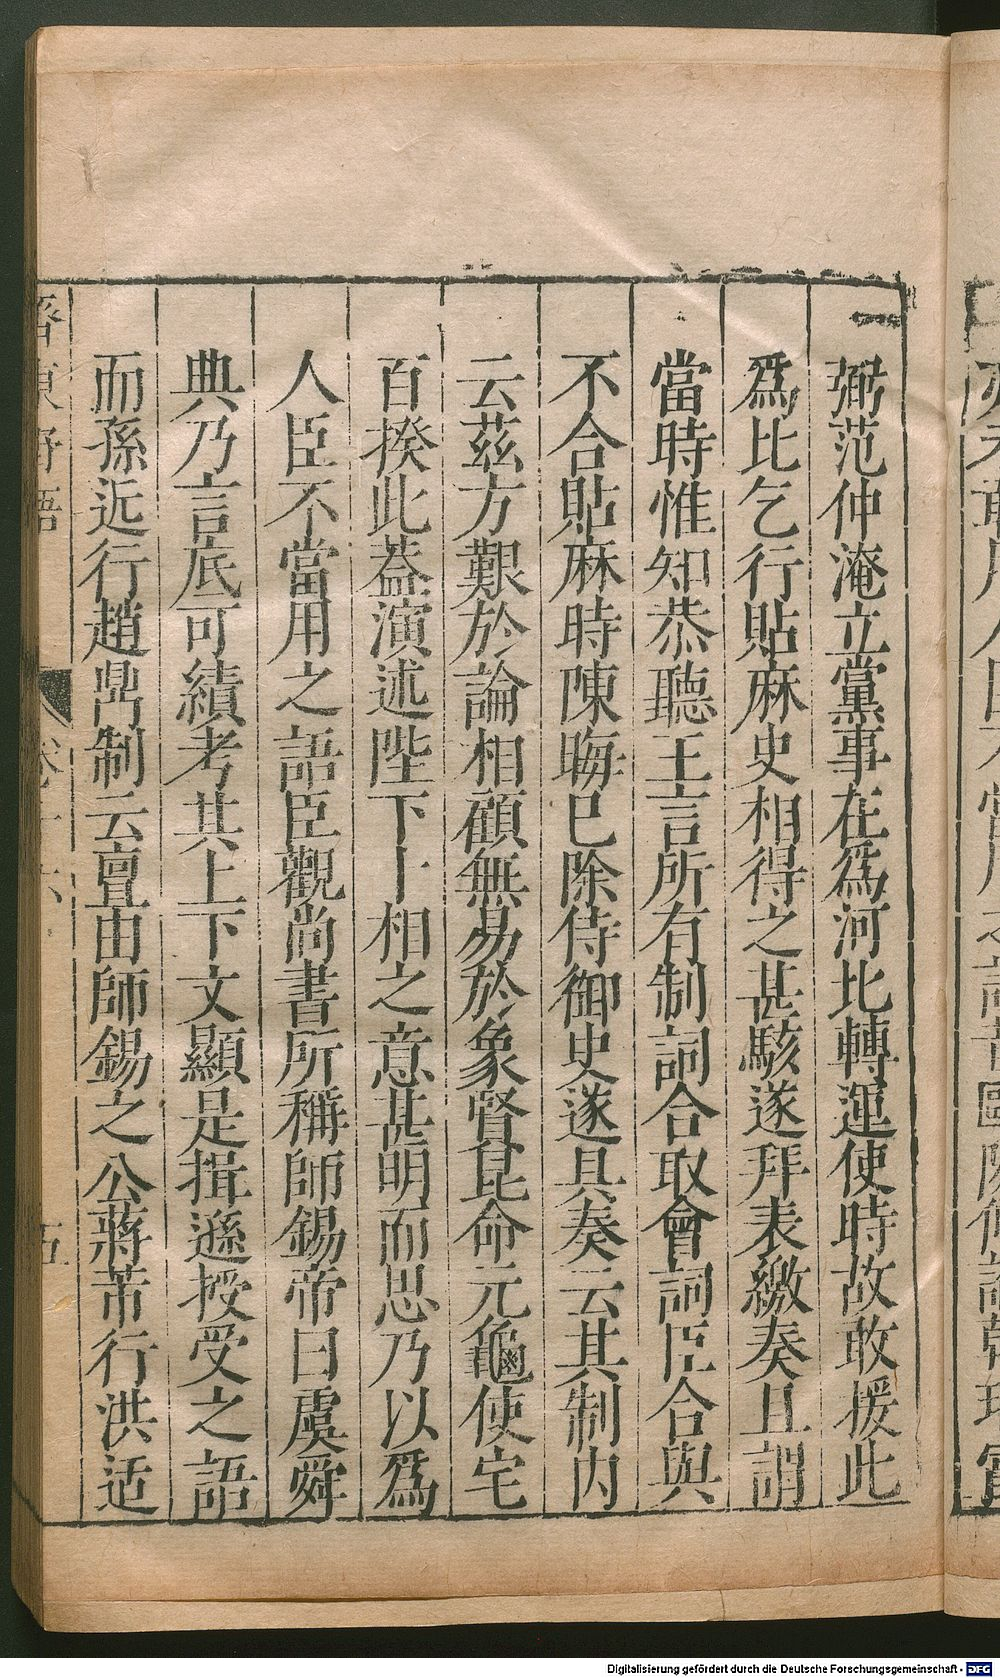 弼范仲淹立黨事在爲河北轉運使時故敢援此
爲比乞行貼麻史相得之甚駭遂拜表繳奏且謂
當時惟知恭聽王言所有制詞合取會詞臣合與
不合貼麻時陳晦已除侍御史遂具奏云其制内
云茲方艱於論相顧無易於象賢昆命元龜使宅
百揆此葢演述陛下卜相之意甚明而思乃以爲
人臣不當用之語臣觀尚書所稱師錫帝曰虞舜
典乃言底可績考其上下文顯是揖遜授受之語
而孫近行趙鼎制云亶由師錫之公蔣芾行洪适
齊東野語
卷十六
五
Digitalisierung gefördert durch die Deutsche Forschungsgemeinschaft - DFG